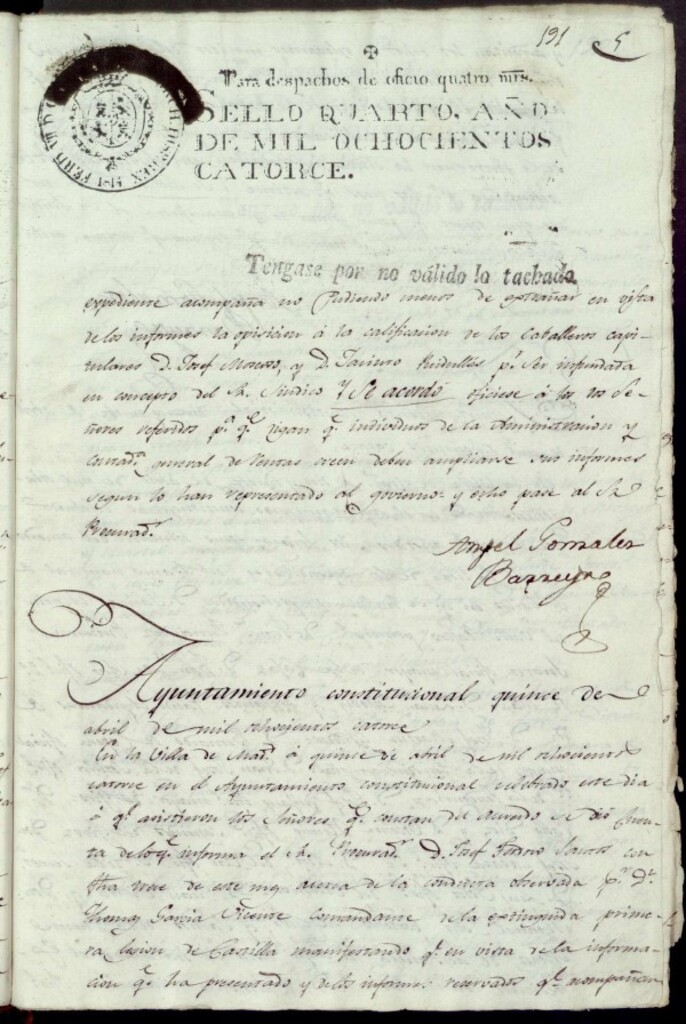 191 5
Para despachos de oficio quatro mrs.
SELLO QUARTO, AÑO
DE MIL OCHOCIENTOS
CATORCE.
Tengase por no válido lo tachado.
expediente acompaña no pudiendo menos de extrañar en vista
de los informes la oposicion á la calificacion de los Caballeros capi-
tulares D. Josef Moroso, y D. Jacinto pr. ser infundada
en concepto del Sr. Sindico Y Se acordó oficiese á los Se-
ñores referidos pa. qe. digan qe. individuos de la Administracion y
Contadª. general de rentas creen deben ampliarse sus informes
segun lo han representado al govierno: y esto pase al Sr.
Procuradr.
Angel Gonzalez
Barreyro
Ayuntamiento constitucional quince de
abril de mil ochocientos catorce
En la Villa de Madd. á quince de abril de mil ochocientos
catorce en el Ayuntamiento constitucional celebrado este dia
á qe. asistieron los Señores qe. constan del acuerdo se dió Cuen-
ta de lo qe. informa el Sr. Procuradr. D. Josef Santos con
fha nueve de este mes acerca de la conducta observada pr. Dn.
Thomas Garcia Vicente Comandante de la extinguida prime-
ra Legion de Castilla manifestando qe. en vista de la informa-
cion qe. ha presentado y de los informes reservados qe. acompañan